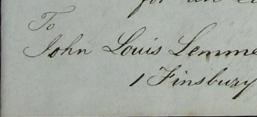 for an
To
John Louis Lemme
1 Finsbury